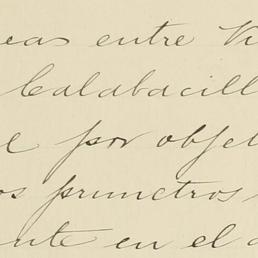 eas entre Vi
Calabacill
e por objet
os prunetros
ente en el a